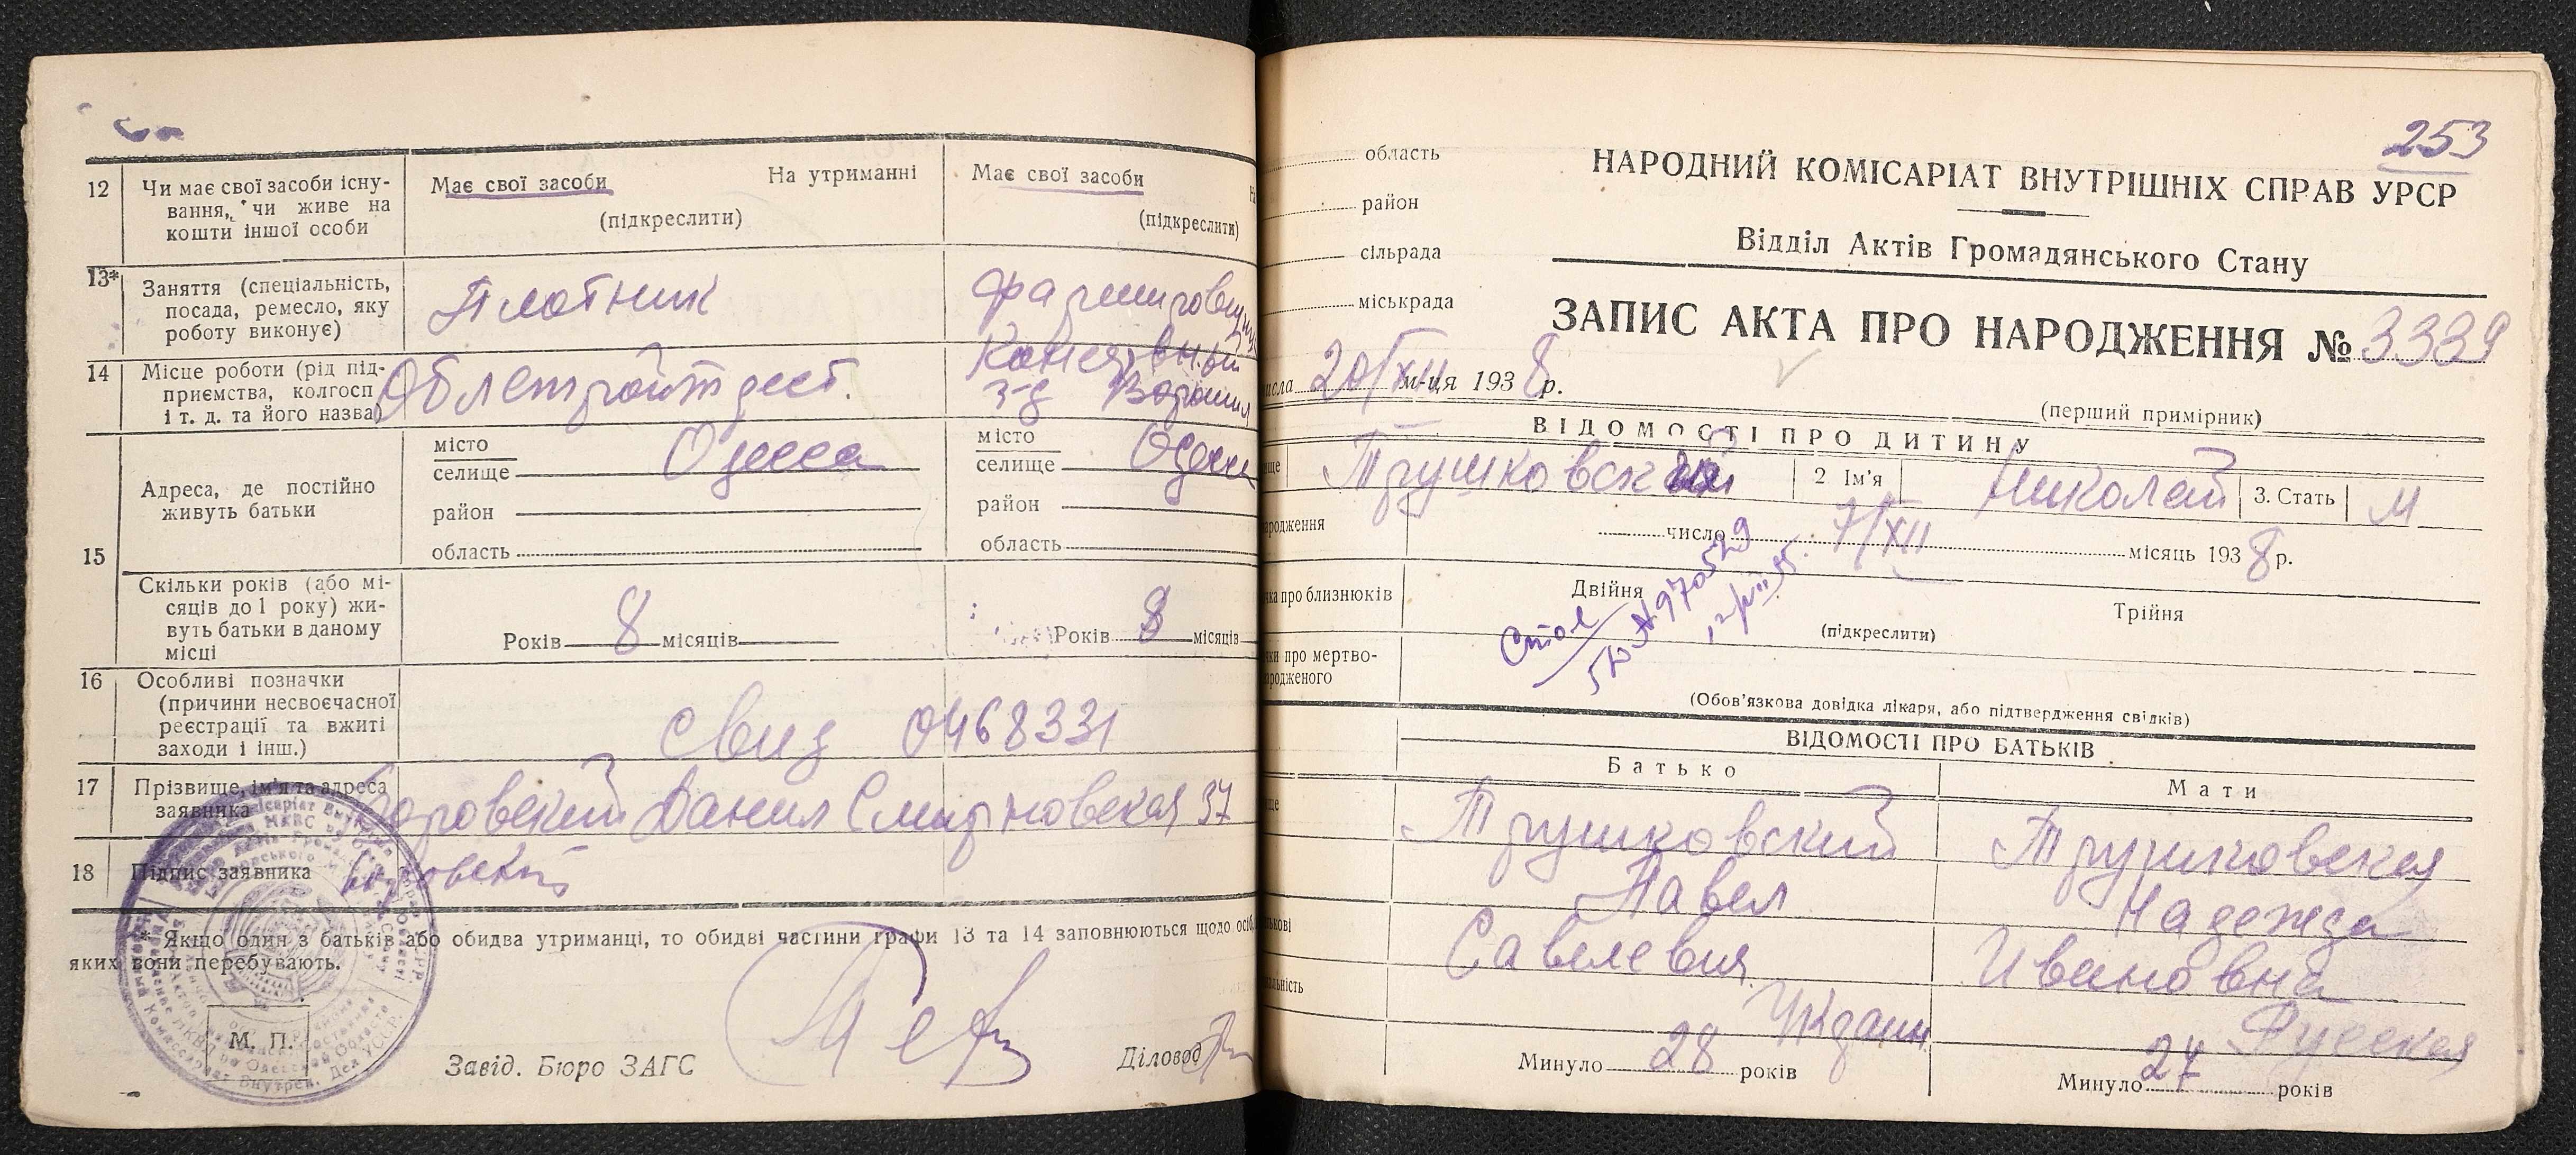 12
Чи має свої засоби існу-
вання, чи живе на
кошти іншої особи
Має свої засоби
На утриманні
(підкреслити)
Має свої засоби
(підкреслити)
13*
Заняття (спеціальність,
посада, ремесло, яку
роботу виконує)
Плотник
14
Місце роботи (рід під-
приємства, колгосп
і т. д. та його назва)
Облстройтрест.
Консервный
з-д Ворошил
15
Адреса, де постійно
живуть батьки
місто
селище
Одесса
район
область
місто
селище
Одесса
район
область
Скільки років (або мі-
сяців до 1 року) жи-
вуть батьки в даному
місці
Років 8 місяців
Років 8 місяців
16
Особливі позначки
(причини несвоєчасної
реєстрації та вжиті
заходи і інш.)
Свид 0468331
17
Прізвище, ім'я та адреса
заявника
Данил Смирновская 37
18
Підпис заявника
* Якщо один з батьків або обидва утриманці, то обидві частини графи 13 та 14 заповнюються щодо осіб,
яких вони перебувають.
М. П.
Завід. Бюро ЗАГС
Діловод
253
область
район
сільрада
міськрада
НАРОДНИЙ КОМІСАРІАТ ВНУТРІШНІХ СПРАВ УРСР
Відділ Актів Громадянського Стану
ЗАПИС АКТА ПРО НАРОДЖЕННЯ № 3339
20/XII м-ця 1938 р.
(перший примірник)
ВІДОМОСТІ ПРО ДИТИНУ
Трушковский
2 Ім'я
Николай
3. Стать
М
число 7/XII місяць 1938 р.
про близнюків
Двійня
Трійня
(підкреслити)
№ 970529
про мертво-
(Обов'язкова довідка лікаря, або підтвердження свідків)
ВІДОМОСТІ ПРО БАТЬКІВ
Батько
Мати
Трушковский
Трушковская
Павел
Надежда
Савелевич
Ивановна
Русская
Минуло 28 років
Минуло 27 років